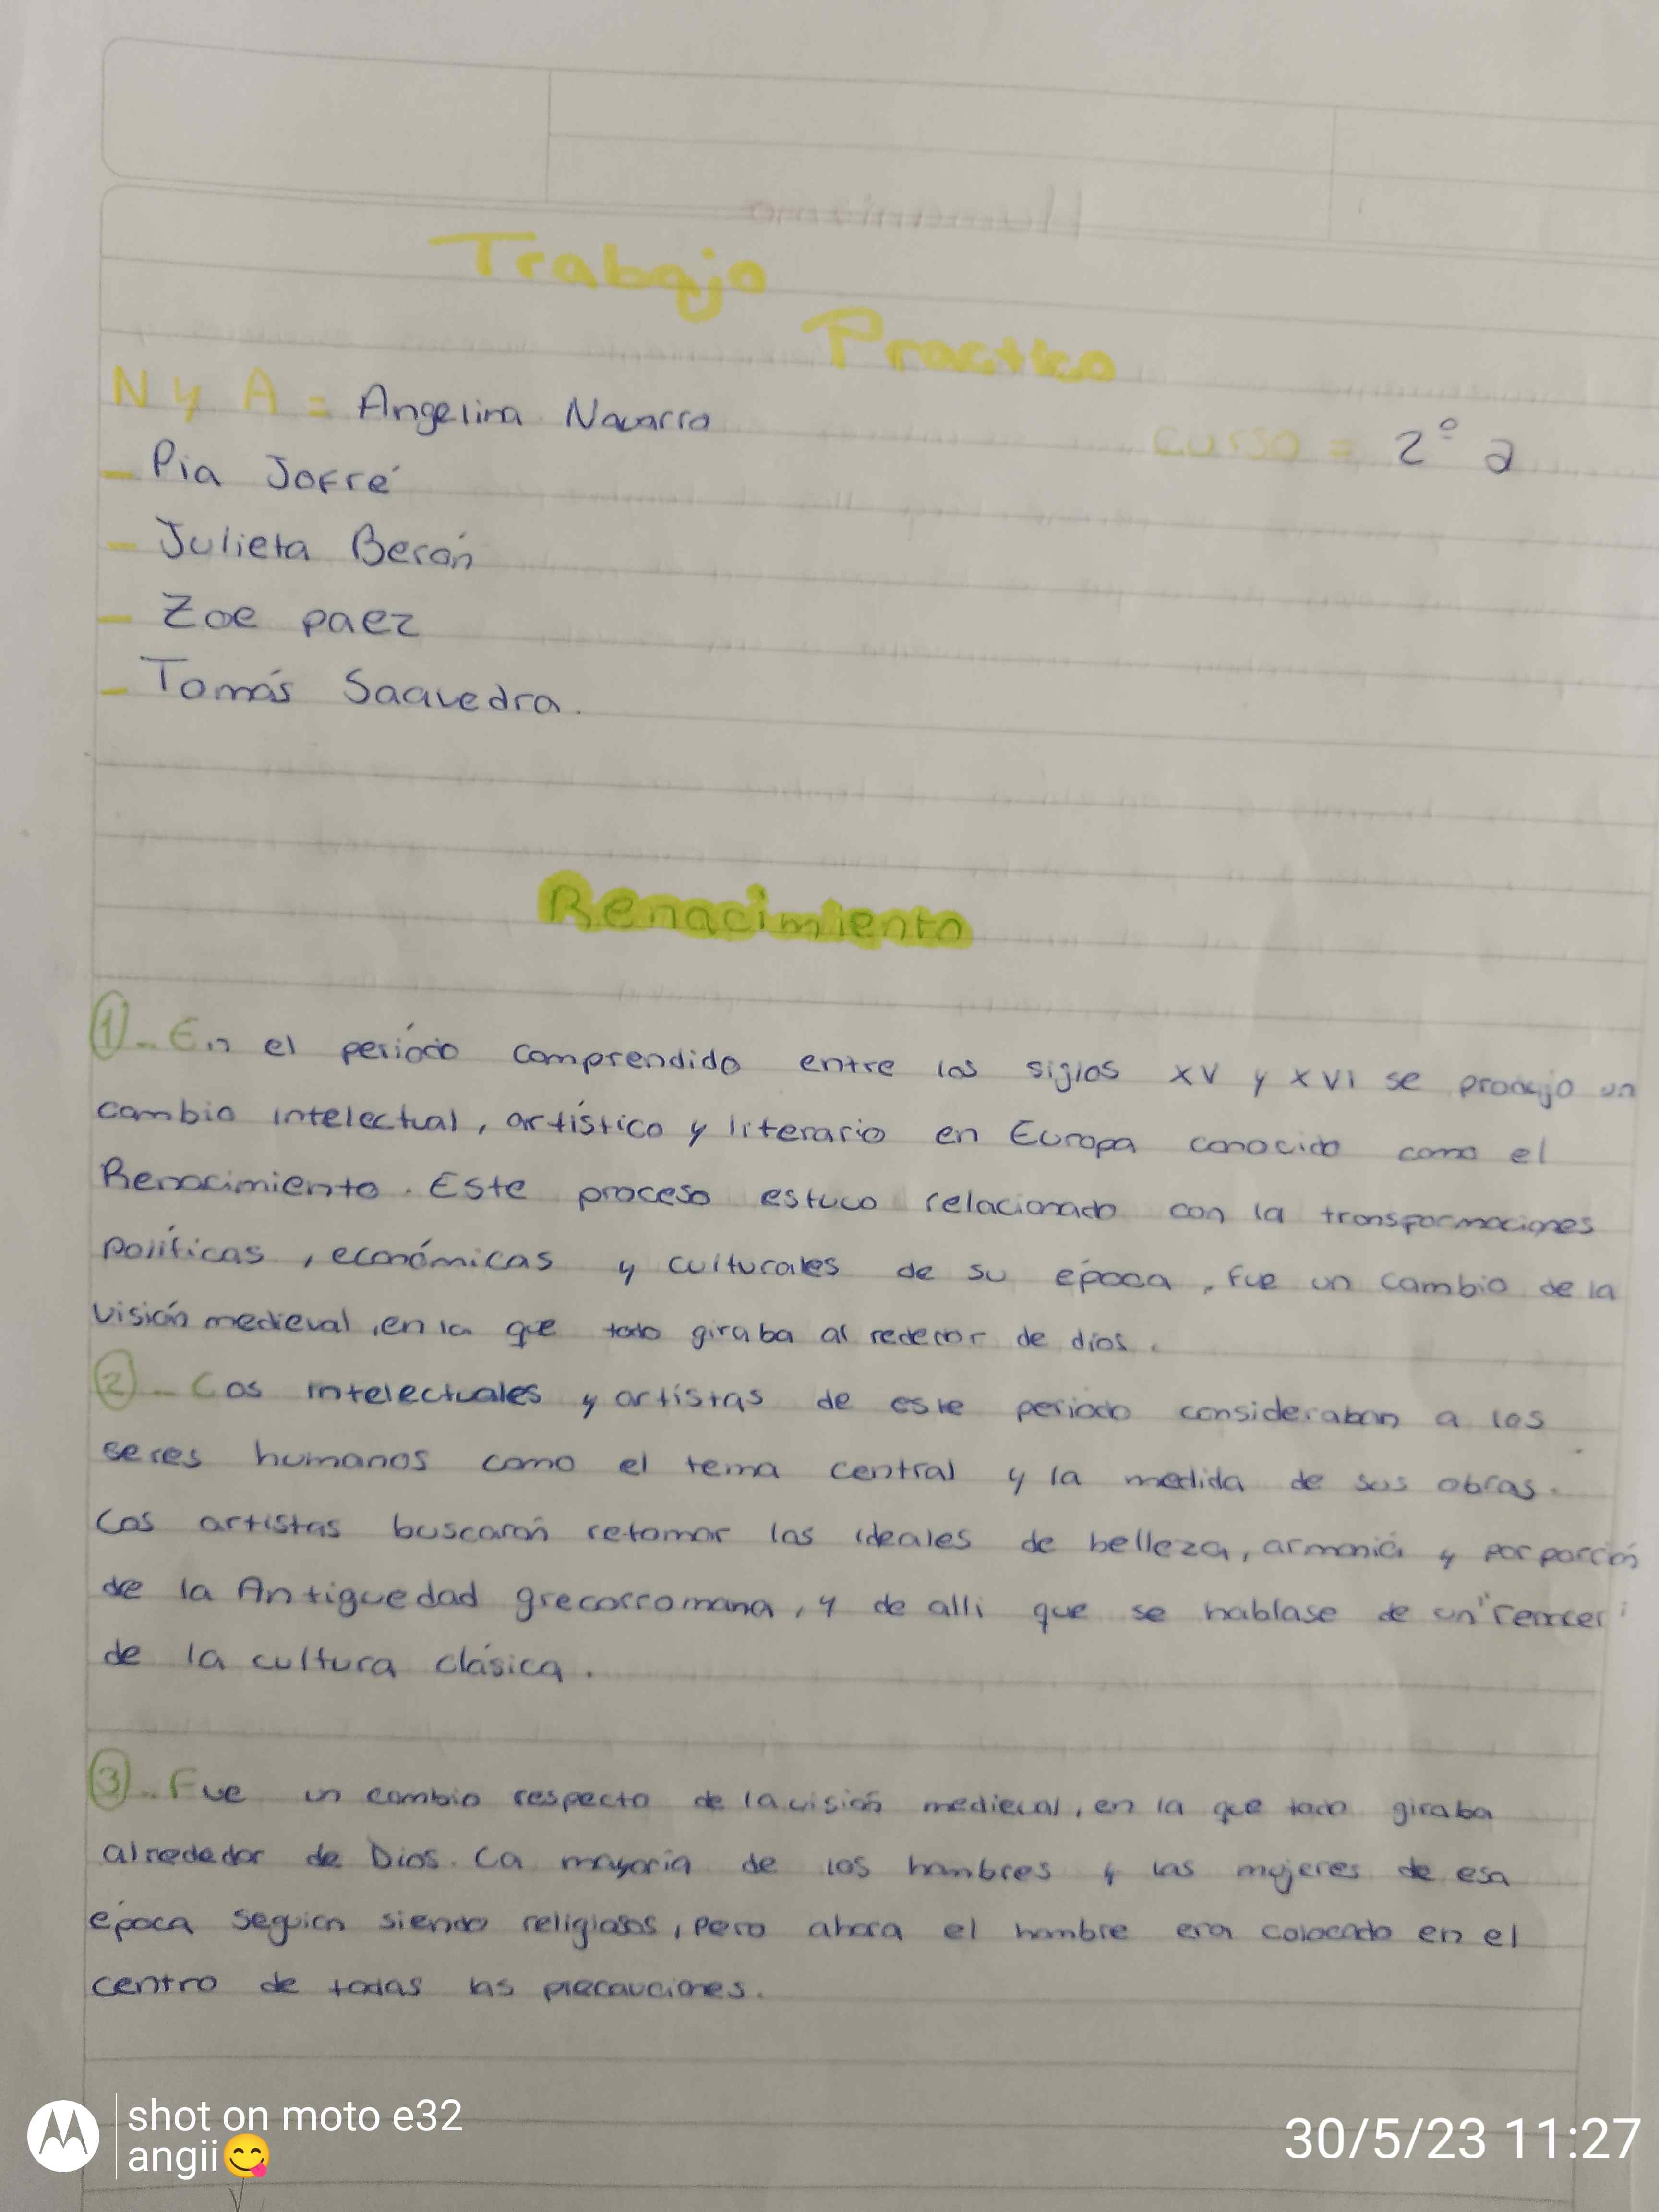 Trabajo
Practico
N y A = Angelina Navarro
curso = 2º a
- Pia Jofré
- Julieta Berón
- Zoe paez
- Tomás Saavedra.
Renacimiento
1- En el período comprendido entre los siglos XV y XVI se produjo un
cambio intelectual, artístico y literario en Europa conocido como el
Renacimiento. Este proceso estuvo relacionado con la transformaciones
políticas, económicas y culturales de su época, fue un cambio de la
visión medieval, en la que todo giraba al rededor de dios.
2- Los intelectuales y artistas de este período consideraban a los
seres humanos como el tema central y la medida de sus obras.
Los artistas buscarón retomar los ideales de belleza, armonía y porporción
de la Antiguedad grecorromana, y de alli que se hablase de un "renacer"
de la cultura clásica.
3- Fue un cambio respecto de la visión medieval, en la que todo giraba
alrededor de Dios. La mayoría de los hombres y las mujeres de esa
época seguían siendo religiosos, pero ahora el hombre era colocado en el
centro de todas las precauciones.
shot on moto e32
angii😋
30/5/23 11:27